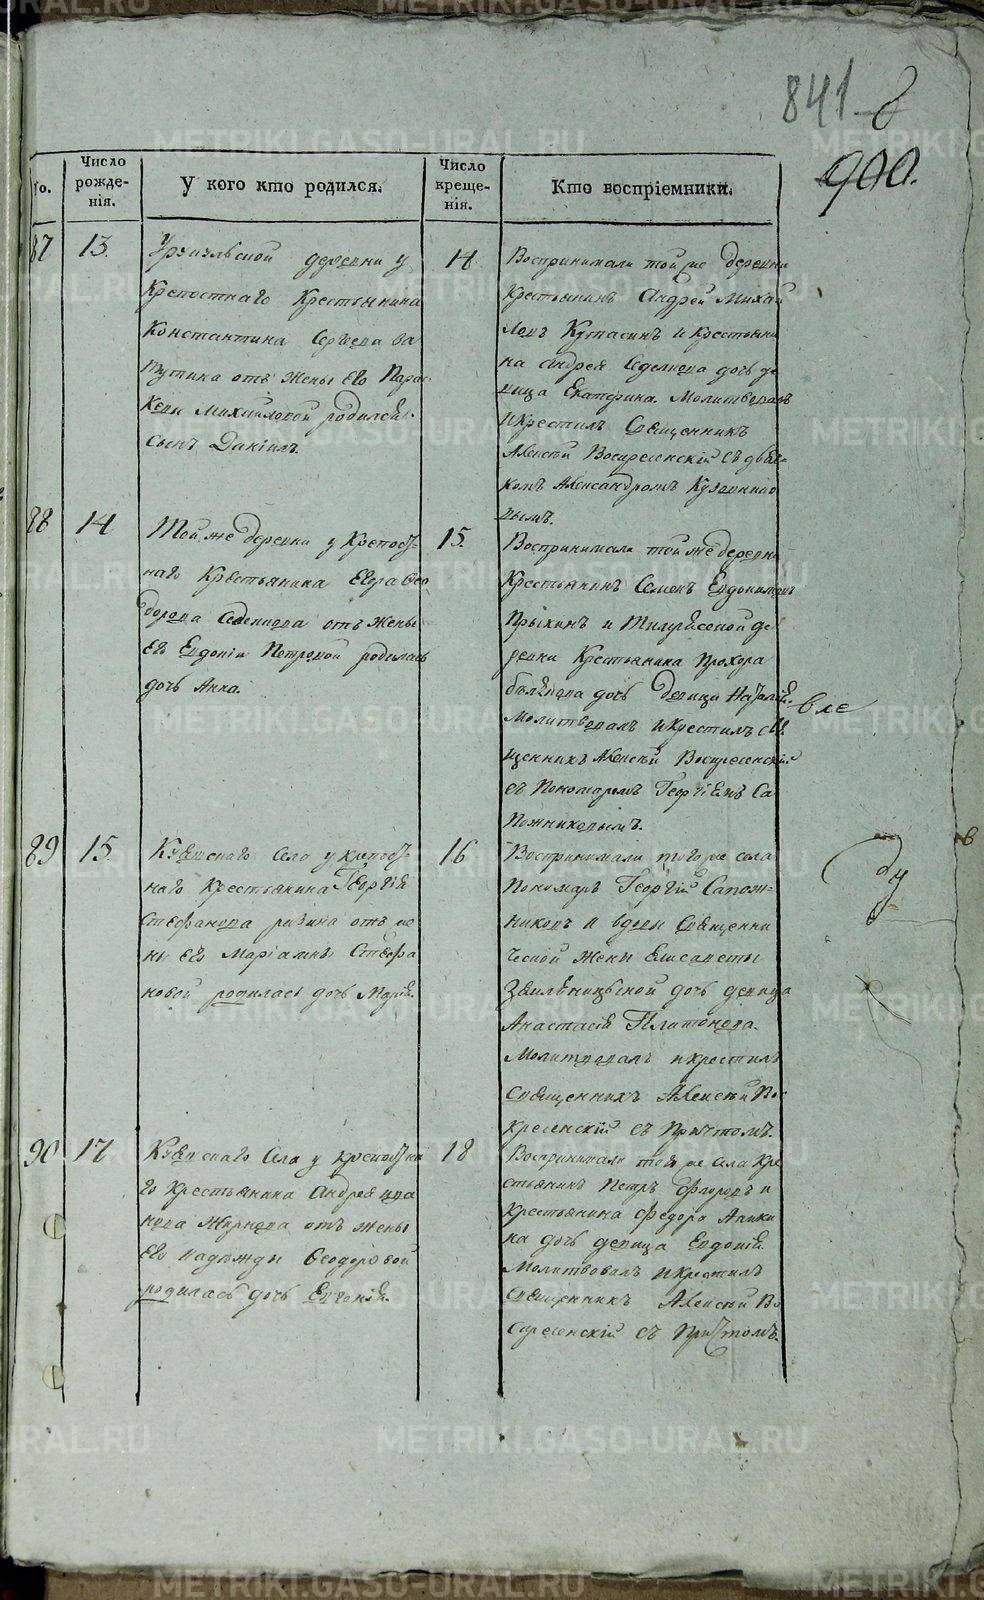 841
900.
Число рожденія.
У кого кто родился.
Число крещенія.
Кто воспріемники.
87
13.
деревни у
крепостнаго крестьянина
Константина Сергеева Ва
тутина отъ жены его Парас
кеви Михайловой родился
сынъ Даніилъ.
14
Воспринимали той же деревни
крестьянинъ Андрей Михай
ловъ и крестьяни
на Андрея дочь де
вица Екатерина. Молитвовалъ
и крестилъ Священникъ
Алексѣй Воскресенскій съ дьяч-
комъ Александромъ Кузовнико
вымъ.
88
14
Той же деревни у крепост-
наго крестьянина Егора Фео
дорова отъ жены
его Евдокіи Петровой родилась
дочь Анна.
15.
Воспринимали той же деревни
крестьянинъ Семенъ Евдокимовъ
и деревни крестьянина Прохора
дочь девица Наталія.
Молитвовалъ и крестилъ свя
щенникъ Алексѣй Воскресенскій
съ Пономаремъ Георгіемъ Са
пожниковымъ.
89
15.
села у крепост-
наго крестьянина Георгія
Стефанова отъ же
ны его Маріамны Стефа
новой родилась дочь Марія.
16
Воспринимали того же села
Пономарь Георгій Сапож-
никовъ и вдовы Священни
ческой жены Елисаветы
дочь девица
Анастасія Платонова.
Молитвовалъ и крестилъ
Священникъ Алексѣй Вос
кресенскій съ Причтомъ.
90
17
села у крепостна
го крестьянина Андрея Ива
нова отъ жены
его Надежды Феодоровой
родилась дочь Евгенія.
18
Воспринимали того же села кре
стьянинъ Петръ Фроловъ и
крестьянина Федора Аники
на дочь девица Евдокія.
Молитвовалъ и крестилъ
Священникъ Алексѣй Во
скресенскій съ Причтомъ.
METRIKI.GASO-URAL.RU